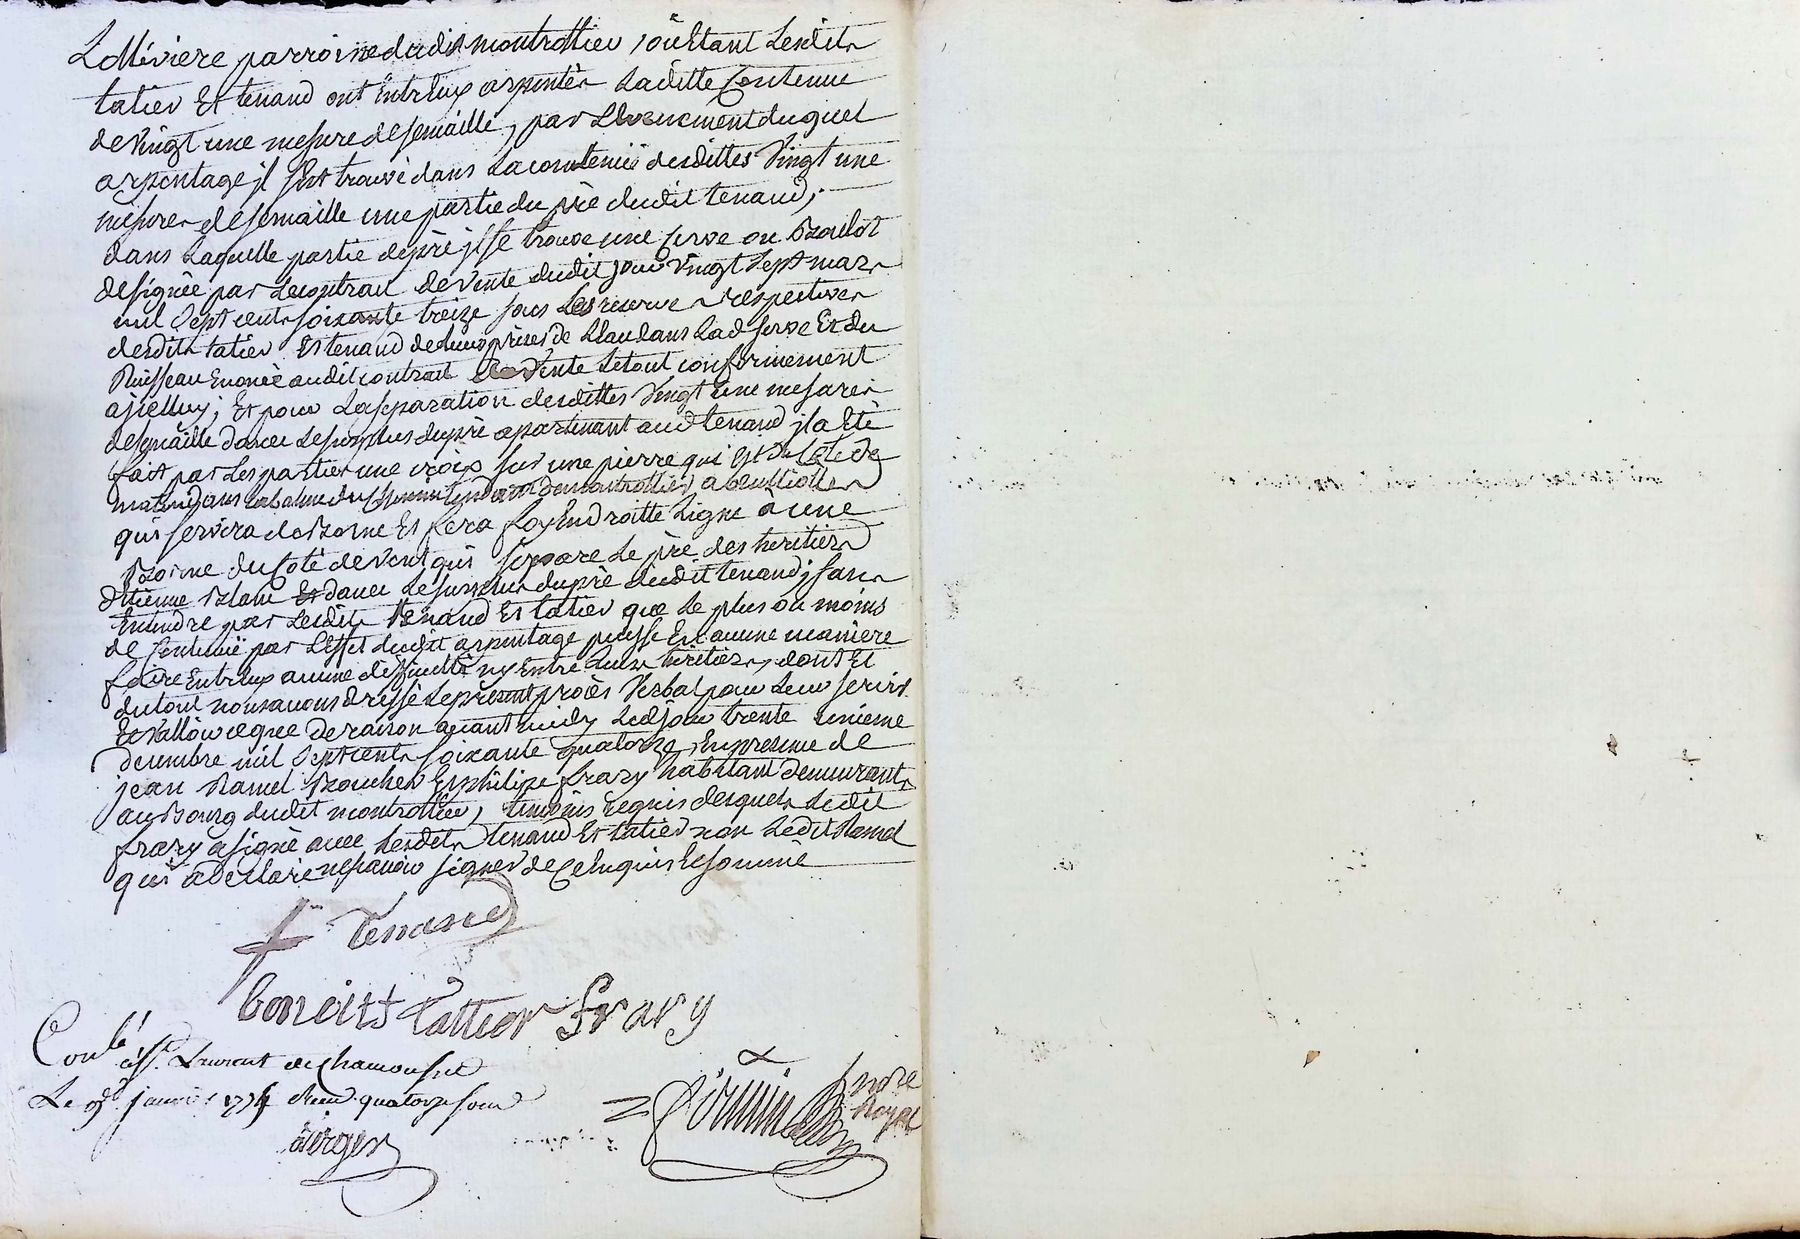 parroisse dudit montrottier, ou Etant Lesdits
tatier Et tenand ont Entreux arpenter Laditte Contenue
de Vingt une mesure de semaille, par Levenement duquel
arpentage jl sest trouvé dans La contenüe desdittes Vingt une
mesures de semaille une partie du pré dudit tenand,
dans Laquelle partie de pré jl se trouve une serve ou
designée par Le contrau de Vente dudit jour Vingt Sept mars
mil Sept cents soixante treize sous Les reserves respectives
desdits tatier Et tenand de Leurs prises de Leau dans Lad. serve Et du
Ruisseau Enoncé audit contrat de Vente Le tout conformement
a jcelluy; Et pour La separation desdittes Vingt une mesures
de semaille davec Le surplus du pré apartenant aud. tenand jl a Eté
fait par Les parties une croix sur une pierre qui Est du Coté de
matin dans du Chemin tendant de montrottier a
qui servira de Borne Et fera foy En droitte Ligne a une
Borne du Coté de Vent qui separe Le pré des heritiers
d'Etienne Blanc Et davec Le surplus du pré dudit tenand; sans
Entendre par Lesdits tenand Et tatier que Le plus ou moins
de Contenüe par L'effet dudit arpentage puisse En aucune maniere
faire Entreux aucune difficulté ny Entre Leurs heritiers, dont Et
du tout nous avons dressé Le present procés Verbal pour Leur servir
Et Valloir ce que de raison avant midy Led. jour trente unieme
decembre mil Sept cents soixante quatorze, En presence de
jean Ramel Boucher Et philipe frary habitant demeurants
au Bourg dudit montrottier, temoins requis desquels Ledit
frary a signé avec Lesdits tenand Et tatier non Ledit Ramel
qui a declaré ne scavoir signer de Ce Enquis Et sommé
Tenand
Benoitt tattier frary
Conlé
à St. Laurent de Chamousset
Le janvier quatorze sous
Berger
nore
Royal